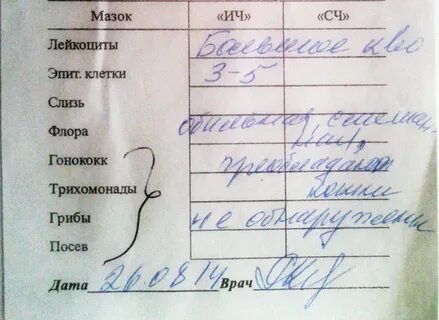 Мазок «ИЧ» «СЧ»
Лейкоциты Большое кво
Эпит. клетки 3-5
Слизь
Флора обильная смешан-
ная,
Гонококк преобладают
Трихомонады кокки
Грибы не обнаружены
Посев
Дата 26.08.14 Врач